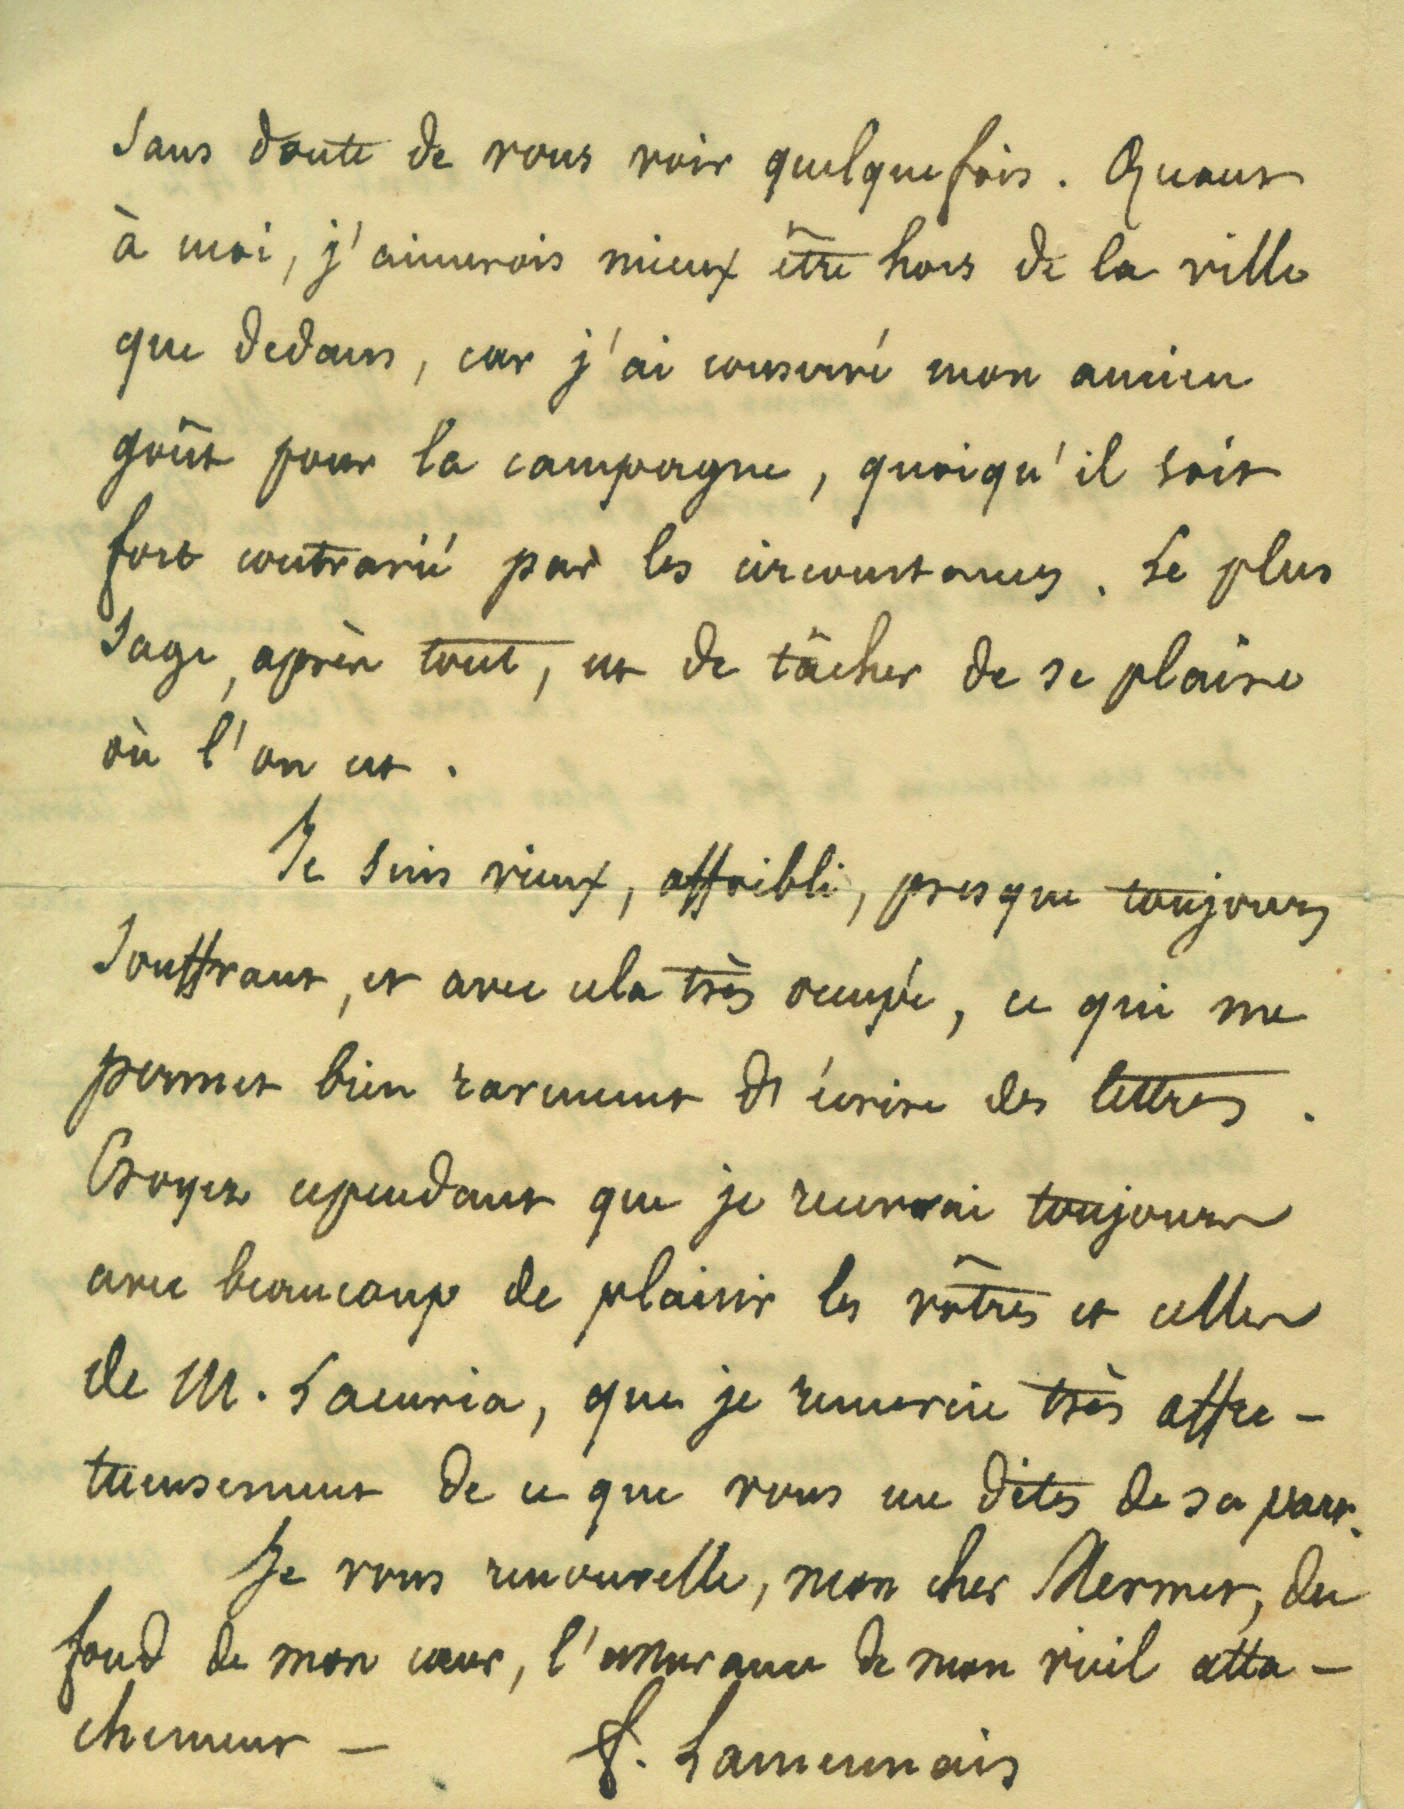 sans doute de vous voir quelquefois. Quant
à moi, j'aimerois mieux être hors de la ville
que dedans, car j'ai conservé mon ancien
goût pour la campagne, quoiqu'il soit
fort contrarié par les circonstances. Le plus
sage, après tout, est de tâcher de se plaire
où l'on est.
Je suis vieux, affoibli, presque toujours
souffrant, et avec cela très occupé, ce qui me
permet bien rarement d'écrire des lettres.
Croyez cependant que je recevrai toujours
avec beaucoup de plaisir les vôtres et celles
de M. Lacuria, que je remercie très affec-
tueusement de ce que vous me dites de sa part.
Je vous renouvelle, mon cher Mermet, du
fond de mon cœur, l'assurance de mon vieil atta-
chement –
F. Lamennais